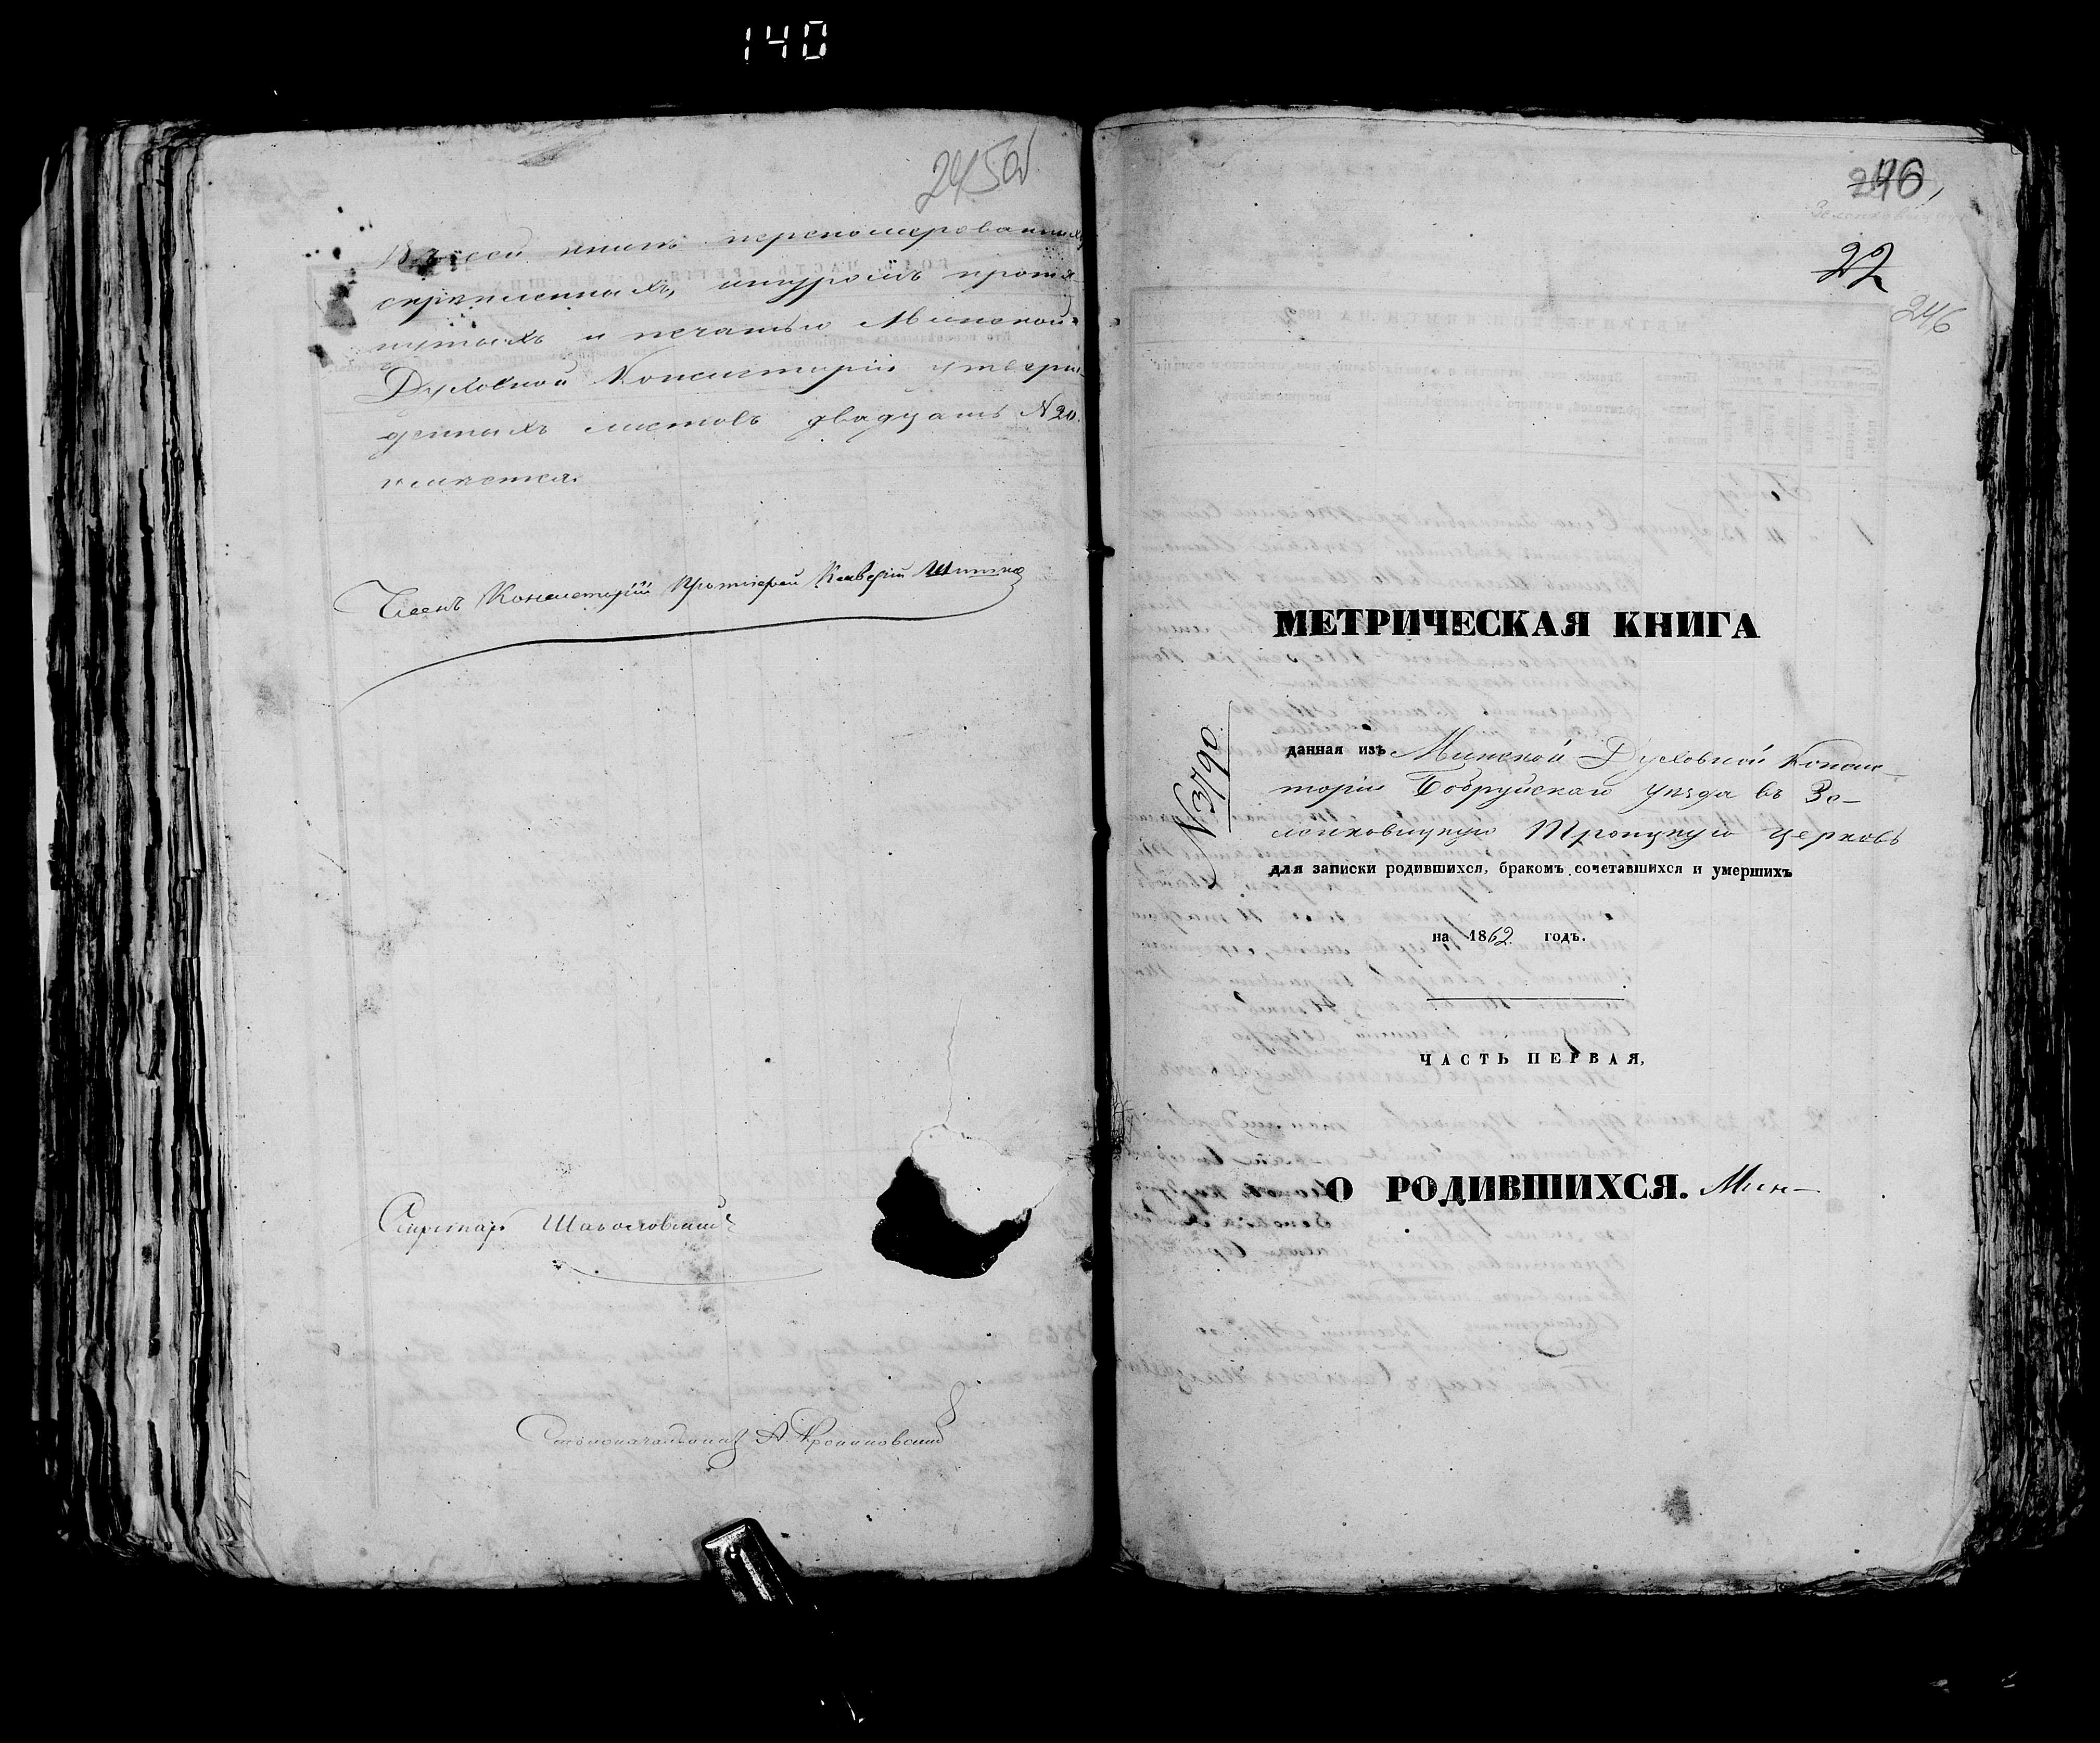 140
245об
Въ сей книгѣ переномерованныхъ
скрѣпленныхъ, шнуромъ протя-
нутыхъ и печатью Минской
Духовной Консисторіи утверж-
денныхъ листовъ двадцать N 20.
имѣется.
Членъ Консисторіи Протоіерей
Секретарь
Столоначальникъ А.
246
22
246
МЕТРИЧЕСКАЯ КНИГА
N 3790.
данная изъ Минской Духовной Консис-
торіи Бобруйскаго уѣзда въ Зе-
ленковицкую Троицкую церковь
для записки родившихся, бракомъ сочетавшихся и умершихъ
на 1862 годъ.
ЧАСТЬ ПЕРВАЯ,
О РОДИВШИХСЯ. Мин-